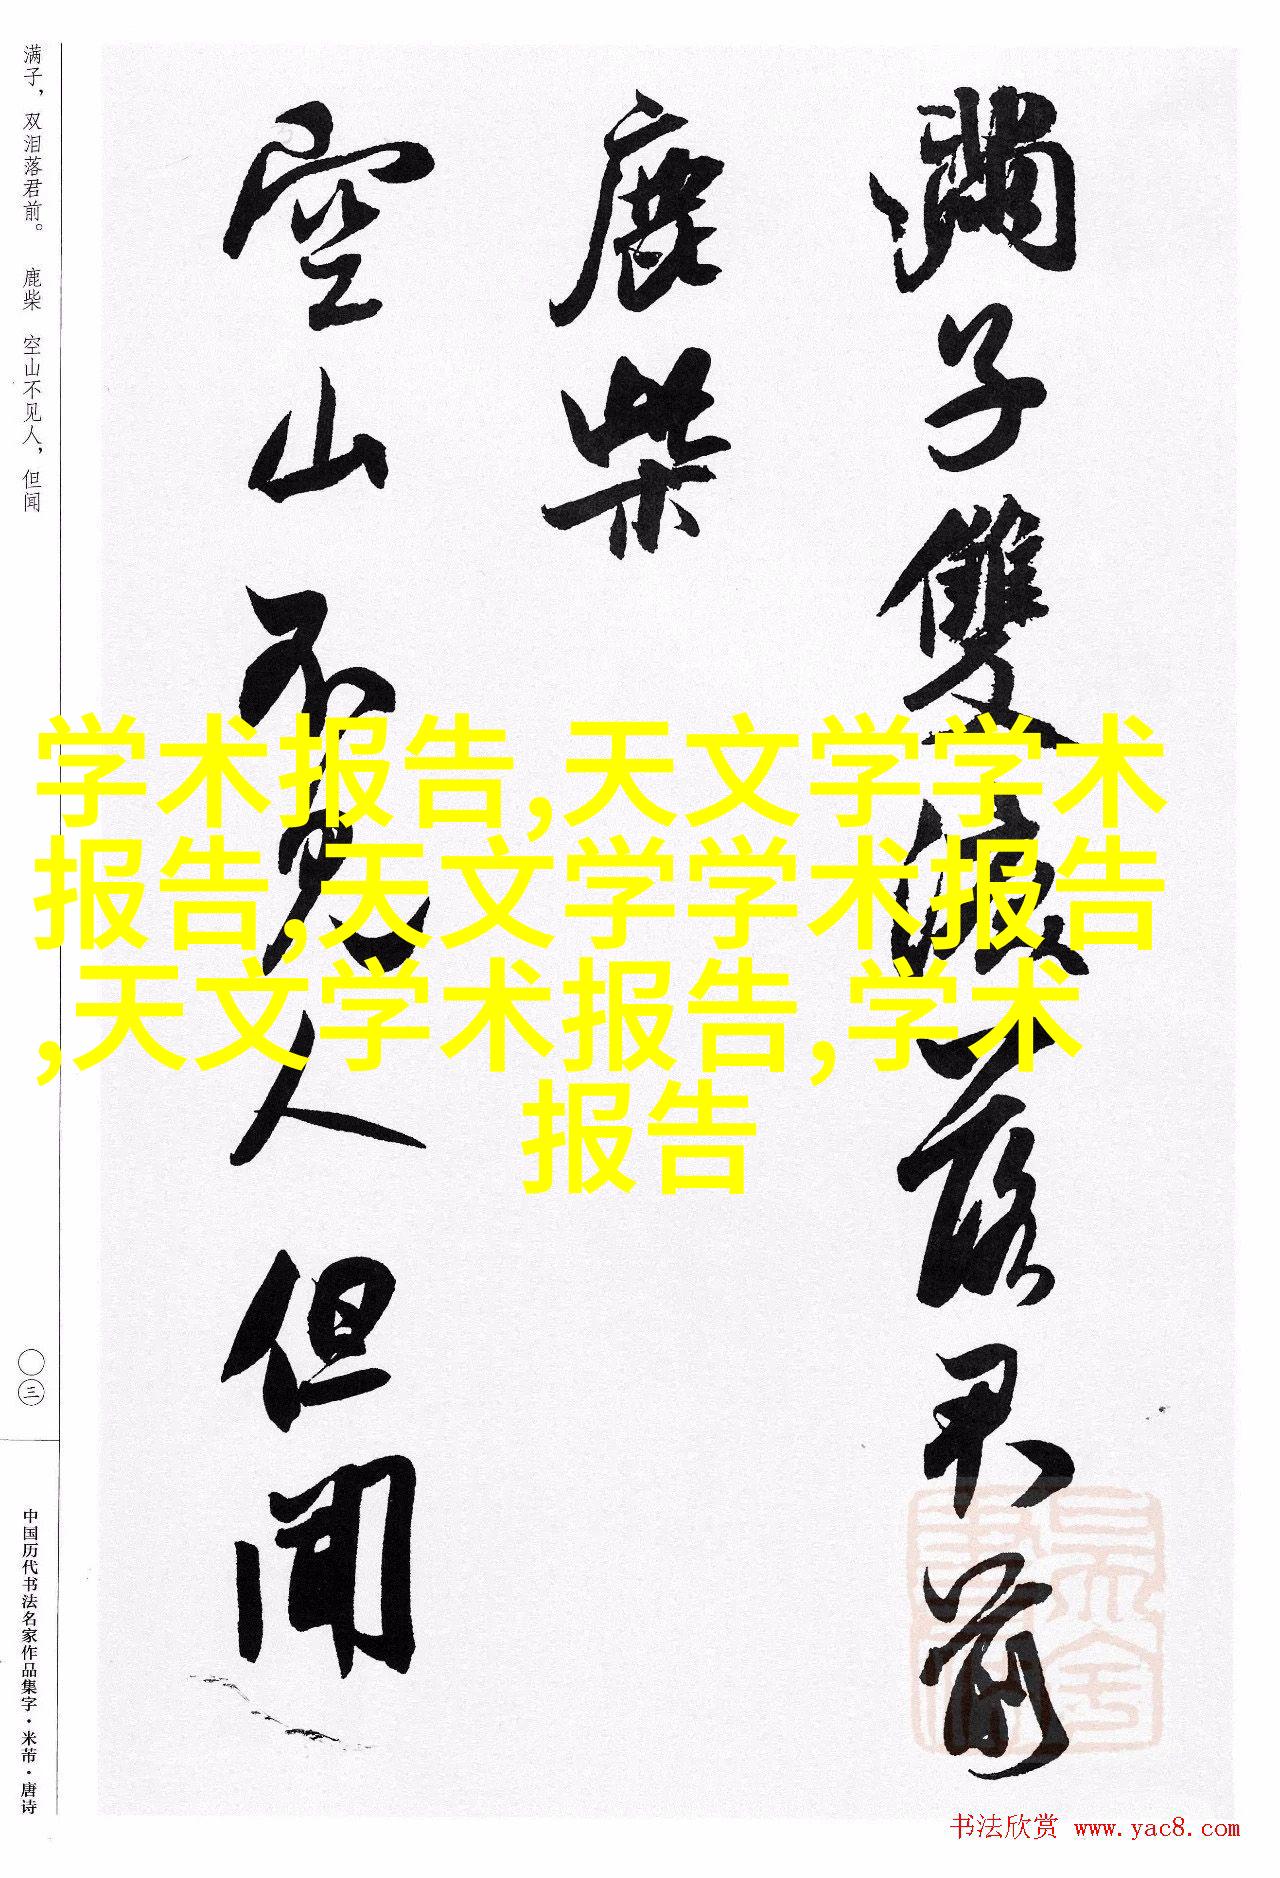 满子，双泪落君前。 鹿柴 空山不见人，但闻
〇三
中国历代书法名家作品集字·米芾·唐诗
满子雙淚落君前
鹿柴
空山不見人但聞
学术报告,天文学学术
报告,天文学学术报告
,天文学术报告,学术
报告
书法欣赏 www.yac8.com